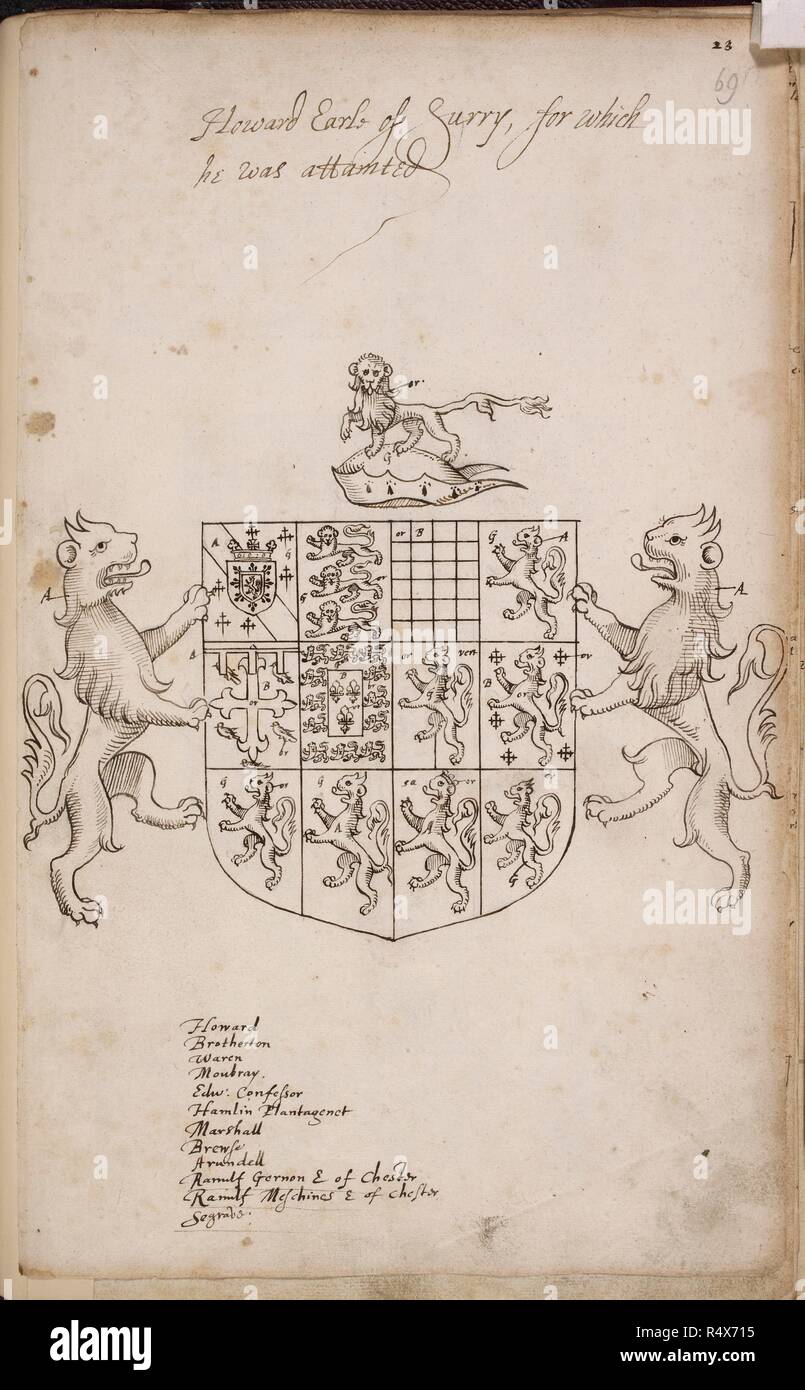 23
69
Howard Earle of Surry, for which
he was attainted
or.
G
A
G
or
G
or B
G
A
A
A
B
B
or
or
B
or
G
vert
B
or
or
G
or
G
A
sa
or
A
G
Howard
Brotherton
Waren
Moubray.
Edw: Confessor
Hamlin Plantagenet
Marshall
Brewse
Arundell
Ranulf Gernon E of Chester
Ranulf Meschines E of Chester
Segrave.
alamy
Image ID: R4X715
www.alamy.com